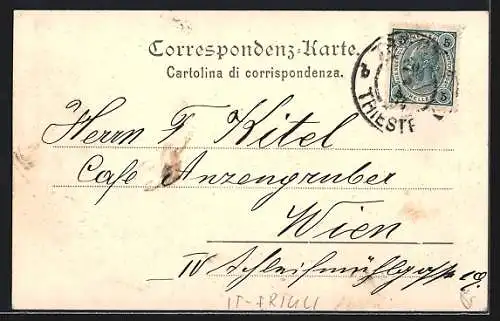 Correspondenz-Karte.
Cartolina di corrispondenza.
5 5
TRIEST
Herrn F Kitel
Cafe Anzengruber
Wien
IV Schleifmühlgasse 19.
IT-FRIULI